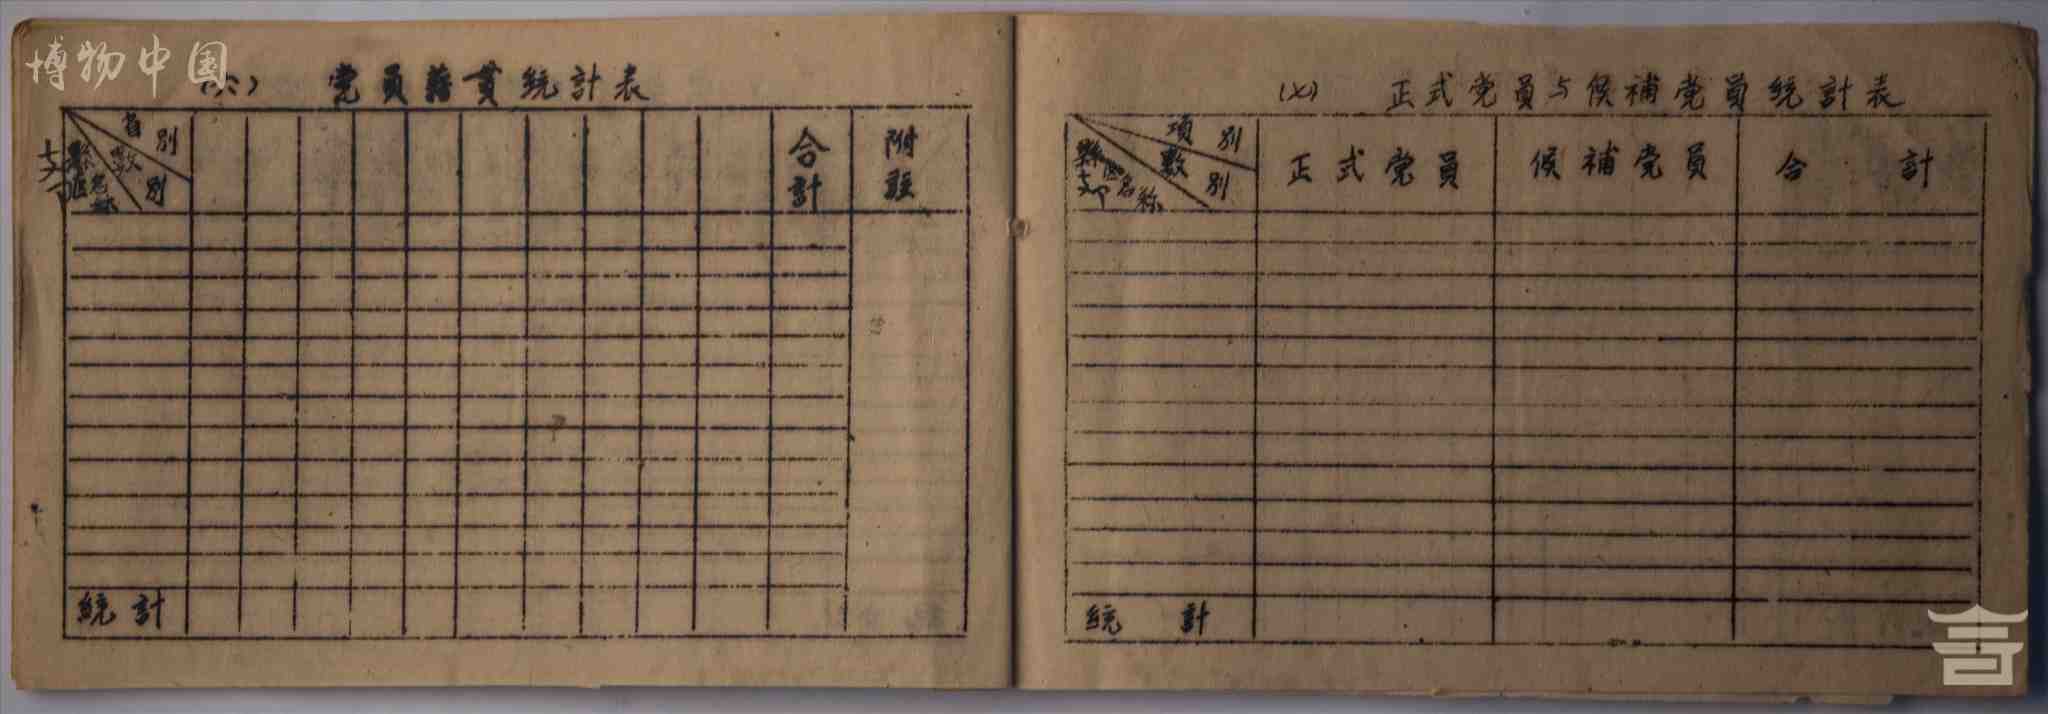 博物中国
(六) 党員籍貫統計表
省別
數別
縣區名称
支部
合計
附註
統計
(七) 正式党員与候補党員統計表
項別
數別
縣區名称
支部
正式党員
候補党員
合計
統計